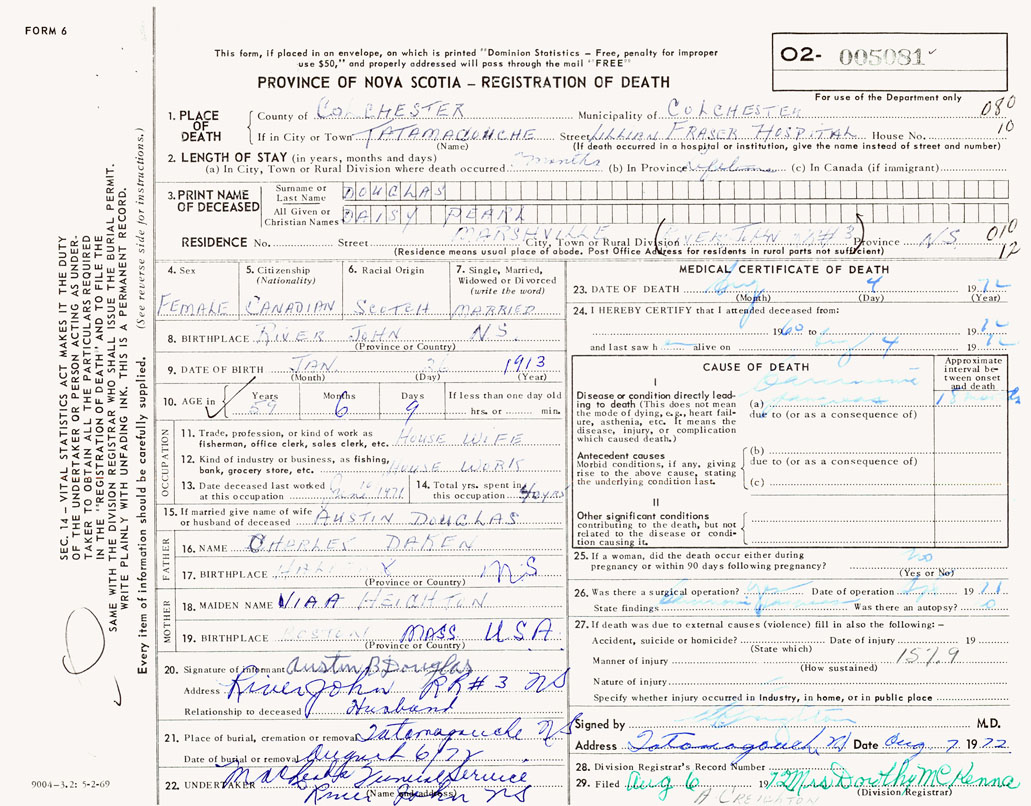 FORM 6
This form, if placed in an envelope, on which is printed "Dominion Statistics – Free, penalty for improper
use $50," and properly addressed will pass through the mail "FREE"
PROVINCE OF NOVA SCOTIA – REGISTRATION OF DEATH
O2- 005081
For use of the Department only
080
10
1. PLACE OF DEATH
County of COLCHESTER Municipality of COLCHESTER
If in City or Town TATAMAGOUCHE Street LILLIAN FRASER HOSPITAL House No.
(Name) (If death occurred in a hospital or institution, give the name instead of street and number)
2. LENGTH OF STAY (in years, months and days)
(a) In City, Town or Rural Division where death occurred months (b) In Province (c) In Canada (if immigrant)
3. PRINT NAME OF DECEASED
Surname or Last Name DOUGLAS
All Given or Christian Names DAISY PEARL
MARSHVILLE
RESIDENCE No. Street City, Town or Rural Division (RIVER JOHN RR#3) Province NS
(Residence means usual place of abode. Post Office Address for residents in rural parts not sufficient)
010
12
4. Sex FEMALE
5. Citizenship (Nationality) CANADIAN
6. Racial Origin SCOTCH
7. Single, Married, Widowed or Divorced (write the word) MARRIED
8. BIRTHPLACE RIVER JOHN NS
(Province or Country)
9. DATE OF BIRTH JAN. 26 1913
(Month) (Day) (Year)
10. AGE in Years 59 Months 6 Days 9 If less than one day old hrs. or min.
OCCUPATION
11. Trade, profession, or kind of work as fisherman, office clerk, sales clerk, etc. HOUSE WIFE
12. Kind of industry or business, as fishing, bank, grocery store, etc. HOUSE WORK
13. Date deceased last worked at this occupation 1971
14. Total yrs. spent in this occupation 40 yrs
15. If married give name of wife or husband of deceased AUSTIN DOUGLAS
FATHER
16. NAME CHARLES DAKEN
17. BIRTHPLACE HALIFAX NS
(Province or Country)
MOTHER
18. MAIDEN NAME HEIGHTON
19. BIRTHPLACE BOSTON MASS USA
(Province or Country)
20. Signature of informant Austin B Douglas
Address River John RR#3 NS
Relationship to deceased Husband
21. Place of burial, cremation or removal Tatamagouche NS
Date of burial or removal August 6/72
22. UNDERTAKER Funeral Service
(Name and address) River John NS
MEDICAL CERTIFICATE OF DEATH
23. DATE OF DEATH Aug 4 1972
(Month) (Day) (Year)
24. I HEREBY CERTIFY that I attended deceased from:
1960 to 1972
and last saw h er alive on Aug 4 1972
CAUSE OF DEATH
Approximate interval between onset and death
I
Disease or condition directly leading to death (This does not mean the mode of dying, e.g., heart failure, asthenia, etc. It means the disease, injury, or complication which caused death.)
(a) 18 months
due to (or as a consequence of)
Antecedent causes
Morbid conditions, if any, giving rise to the above cause, stating the underlying condition last.
(b)
due to (or as a consequence of)
(c)
II
Other significant conditions contributing to the death, but not related to the disease or condition causing it.
25. If a woman, did the death occur either during pregnancy or within 90 days following pregnancy? No
(Yes or No)
26. Was there a surgical operation? yes Date of operation 1971
State findings Was there an autopsy?
27. If death was due to external causes (violence) fill in also the following: –
Accident, suicide or homicide? Date of injury 19
(State which)
Manner of injury
(How sustained)
Nature of injury
Specify whether injury occurred in Industry, in home, or in public place
Signed by M.D.
Address Tatamagouche, NS Date Aug 7 1972
28. Division Registrar's Record Number
29. Filed Aug 6 1972 Mrs Dorothy McKenna
(Division Registrar)
A CREIGHTON
SEC. 14 – VITAL STATISTICS ACT MAKES IT THE DUTY
OF THE UNDERTAKER OR PERSON ACTING AS UNDER-
TAKER TO OBTAIN ALL THE PARTICULARS REQUIRED
IN THE "REGISTRATION OF DEATH" AND TO FILE THE
SAME WITH THE DIVISION REGISTRAR WHO SHALL ISSUE THE BURIAL PERMIT.
WRITE PLAINLY WITH UNFADING INK. THIS IS A PERMANENT RECORD.
Every item of information should be carefully supplied. (See reverse side for instructions.)
9004-3.2: 5-2-69